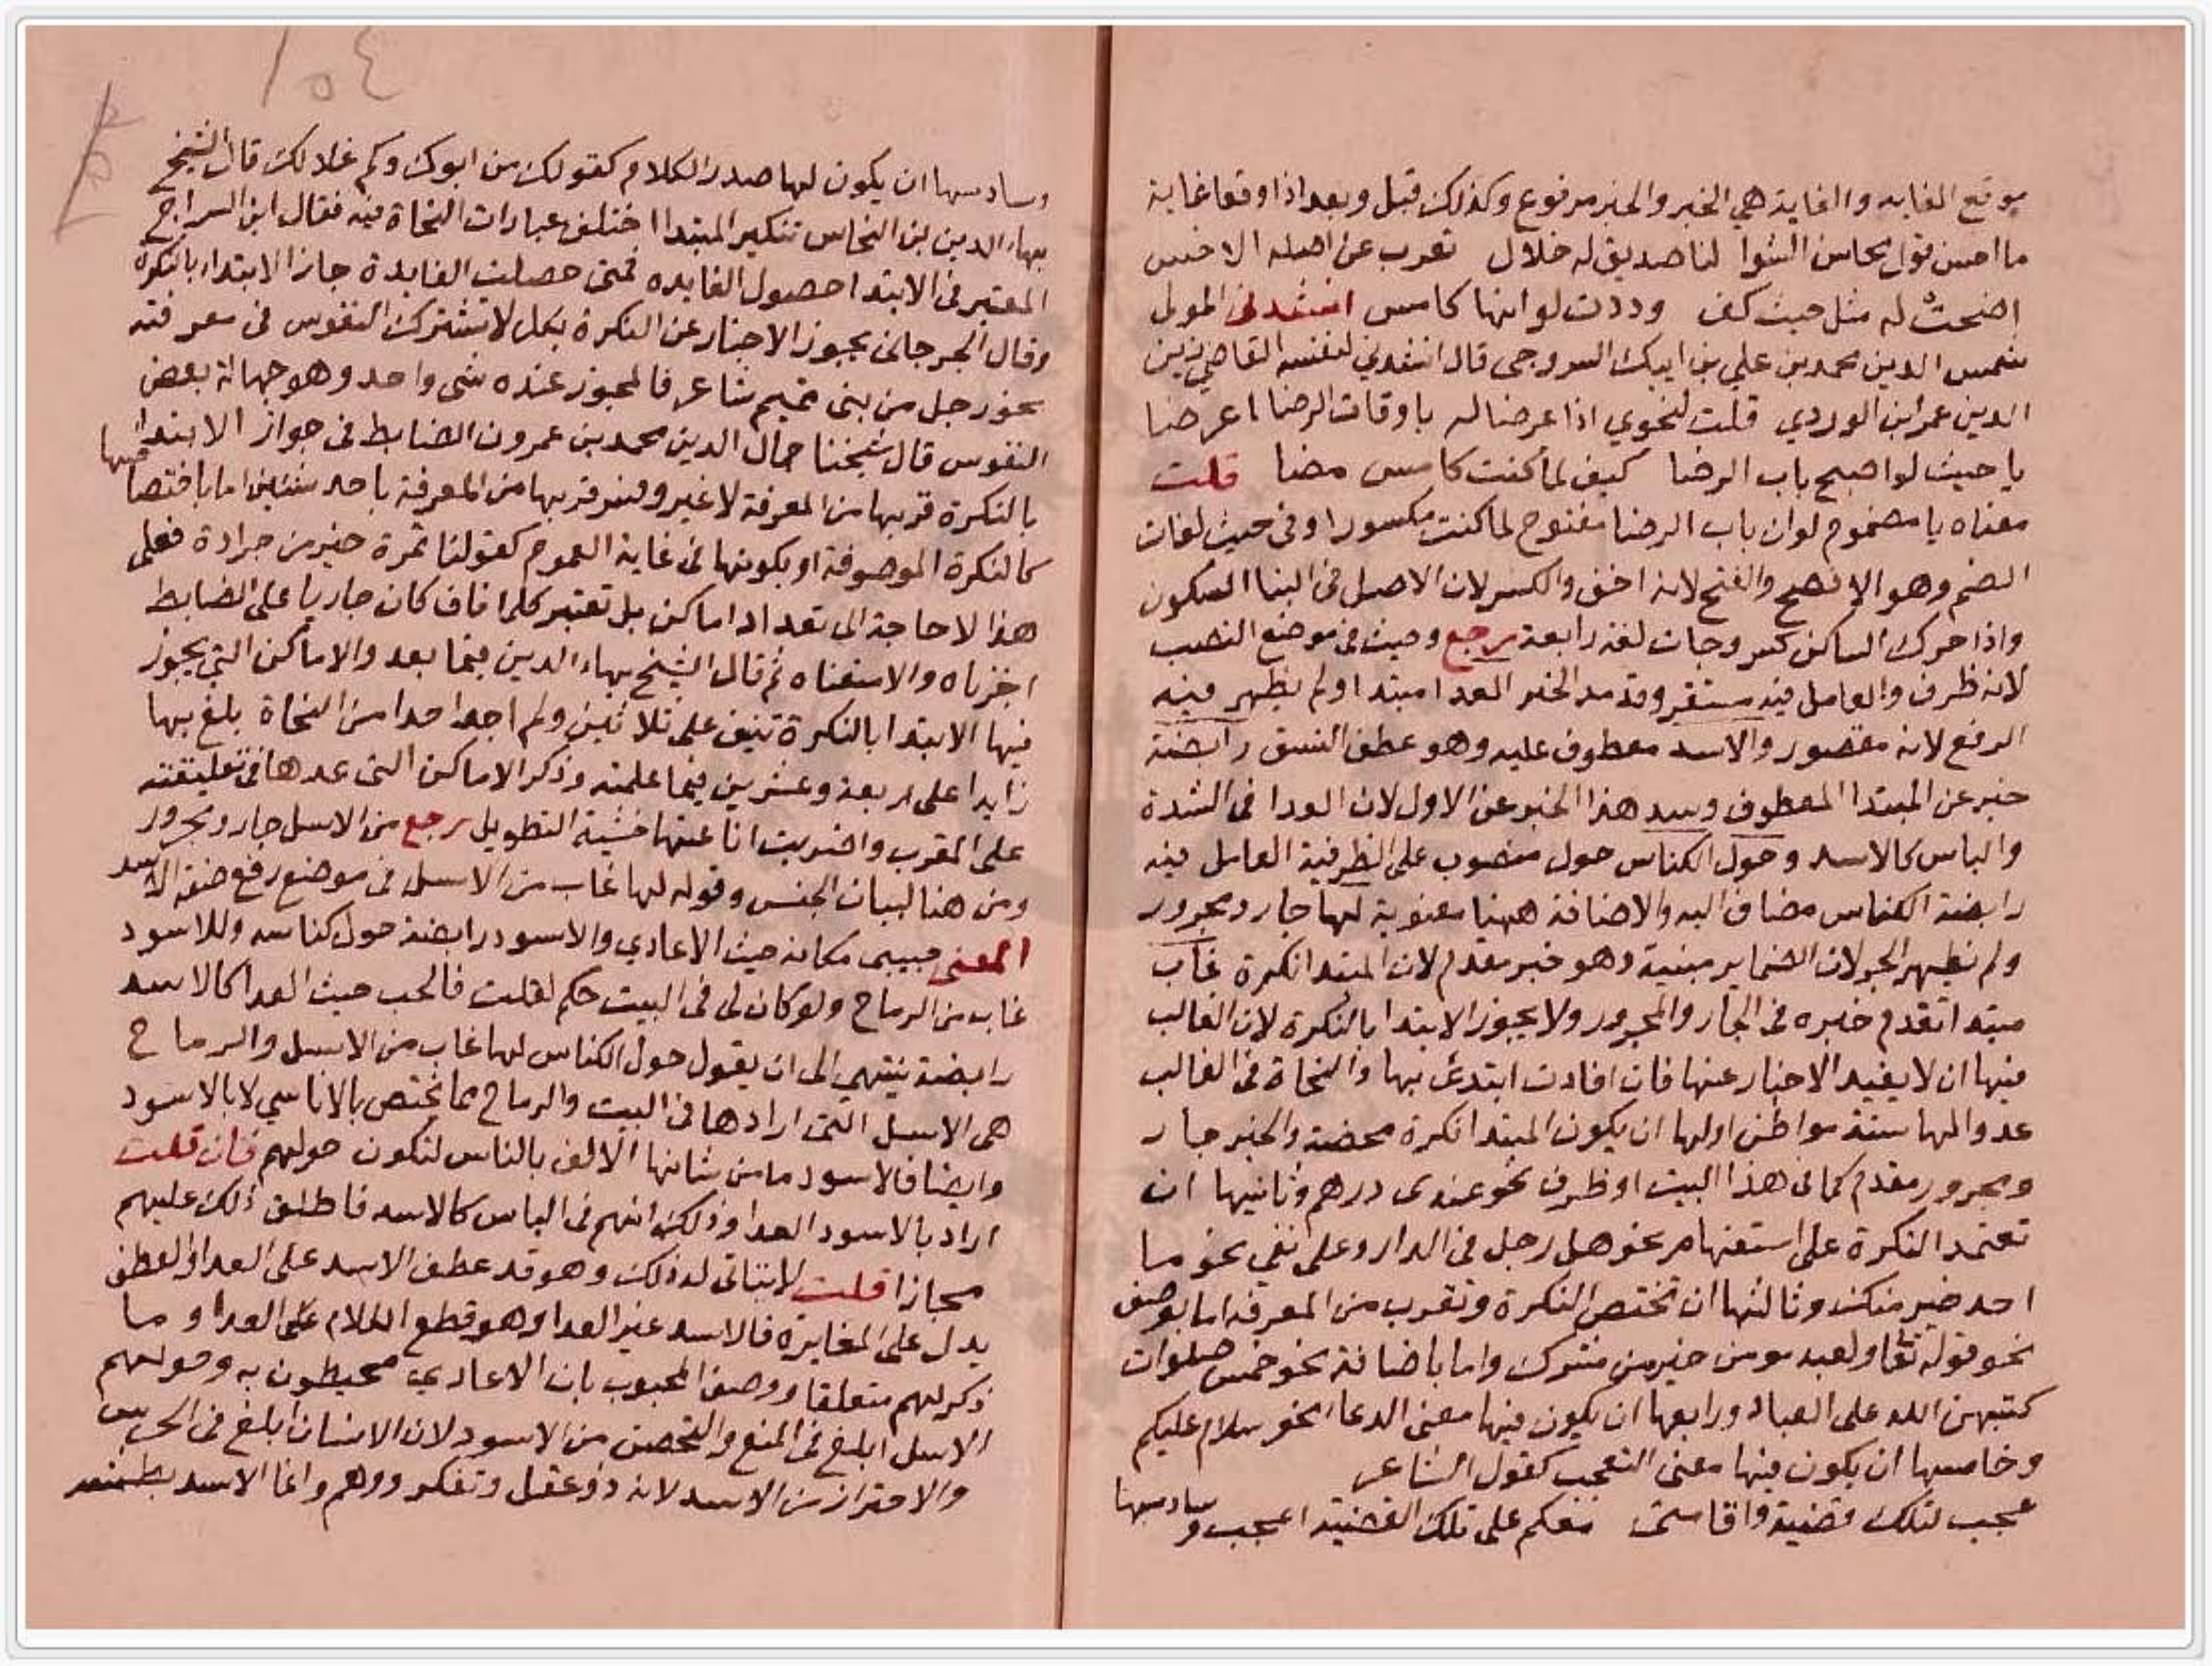 موقع الغايه والغاية هي الخبر والخبر مرفوع وكذلك قبل وبعد اذا وقعا غاية
ما احسن قول محاسن الشوا لنا صديق له خلال تعرب عن اصله الاخس
اضحت له مثل حيث كف وددت لو انها كامس انشدنى المولى
شمس الدين محمد بن علي بن ايبك السروجى قال انشدني لنفسه القاضي زين
الدين عمر ابن الوردي قلت لنحوي اذا عرضنا له باوقات الرضا اعرضا
يا حيث لو اصبح باب الرضا كيف لما كنت كامس مضا قلت
معناه يا مضموم لو ان باب الرضا مفتوح لما كنت مكسورا وفى حيث لغات
الضم وهو الافصح والفتح لانه اخف والكسر لان الاصل فى البنا السكون
واذا حرك الساكن كسر وجات لغة رابعة رجع وحيث فى موضع النصب
لانه ظرف والعامل فيه مستقر وقد سد الخبر العدا مبتدا ولم يظهر فيه
الرفع لانه مقصور والاسد معطوف عليه وهو عطف النسق رابضة
خبر عن المبتدا المعطوف وسد هذا الخبر عن الاول لان العدا فى الشدة
والباس كالاسد وحول الكناس حول منصوب على الظرفية العامل فيه
رابضة الكناس مضاف اليه والاضافة ههنا معنوية لها جار ومجرور
ولم يظهر الجر لان الضماير مبنية وهو خبر مقدم لان المبتدا نكرة غاب
مبتدا تقدم خبره فى الجار والمجرور ولا يجوز الابتدا بالنكرة لان الغالب
فيها ان لا يفيد الاخبار عنها فان افادت ابتدئ بها والنحاة فى الغالب
عدوا لها ستة مواطن اولها ان يكون المبتدا نكرة محضة والخبر جار
ومجرور مقدم كما فى هذا البيت او ظرف نحو عندى درهم وثانيها ان
تعتمد النكرة على استفهام نحو هل رجل فى الدار وعلى نفي نحو ما
احد خير منك وثالثها ان تختص النكرة وتقرب من المعرفة اما بوصف
نحو قوله تعا ولعبد مومن خير من مشرك واما باضافة نحو خمس صلوات
كتبهن الله على العباد ورابعها ان يكون فيها معنى الدعا نحو سلام عليكم
وخامسها ان يكون فيها معنى التعجب كقول الشاعر
عجب لتلك قضية واقامتى فيكم على تلك القضية اعجب وسادسها
١٥٤
وسادسها ان يكون لها صدر الكلام كقولك من ابوك وكم غلا لك قال الشيخ
بهاء الدين بن النحاس تنكير المبتدا اختلف عبارات النحاة فيه فقال ابن السراج
المعتبر فى الابتدا حصول الفايده فمتى حصلت الفايدة جاز الابتداء بالنكرة
وقال الجرجانى يجوز الاخبار عن النكرة بكل لا تشترك النفوس فى معرفته
نحو رجل من بنى تميم شاعر فالمجوز عنده شى واحد وهو جهالة بعض
النفوس قال شيخنا جمال الدين محمد بن عمرون الضابط فى جواز الابتدا
بالنكرة قربها من المعرفة لا غير وفسر قربها من المعرفة باحد شيئين اما باختصاصها
كالنكرة الموصوفة او بكونها فى غاية العموم كقولنا تمرة خير من جرادة فعلى
هذا لا حاجة الى تعداد اماكن بل تعتبر كلما فان كان جاريا على الضابط
اجزناه والا منعناه ثم قال الشيخ بهاء الدين فيما بعد والاماكن التي يجوز
فيها الابتدا بالنكرة تنيف على ثلاثين ولم اجد احدا من النحاة بلغ بها
زايدا على اربعة وعشرين فيما علمته وذكر الاماكن التى عدها فى تعليقته
على المقرب واضربت انا عنها خشية التطويل رجع من الاسل جار ومجرور
ومن هنا لبيان الجنس وقوله لها غاب من الاسل فى موضع رفع صفة الاسد
المعنى حبيبى مكانه حيث الاعادي والاسود رابضة حول كناسه وللاسود
غاب من الرماح ولو كان لى فى البيت حكم لقلت فالحب حيث العدا كالاسد
رابضة ينتهي الى ان يقول حول الكناس لها غاب من الاسل والرماح
هى الاسل التى ارادها فى البيت والرماح مما يختص بالاناسي لا بالاسود
وايضا فالاسود ما من شانها الالف بالناس لتكون حولهم فان قلت
اراد بالاسود العدا وذلك انهم فى الباس كالاسد فاطلق ذلك عليهم
مجازا قلت لا يتاتى له ذلك وهو قد عطف الاسد على العدا والعطف
يدل على المغايرة فالاسد غير العدا وهو قطع الكلام على العدا وما
ذكر لهم متعلقا ووصف المحبوب بان الاعادي محيطون به وحولهم
الاسل ابلغ فى المنع والتحصن من الاسود لان الانسان ابلغ فى الحرس
والاحتراز من الاسد لانه ذو عقل وتفكر ووهم وانما الاسد